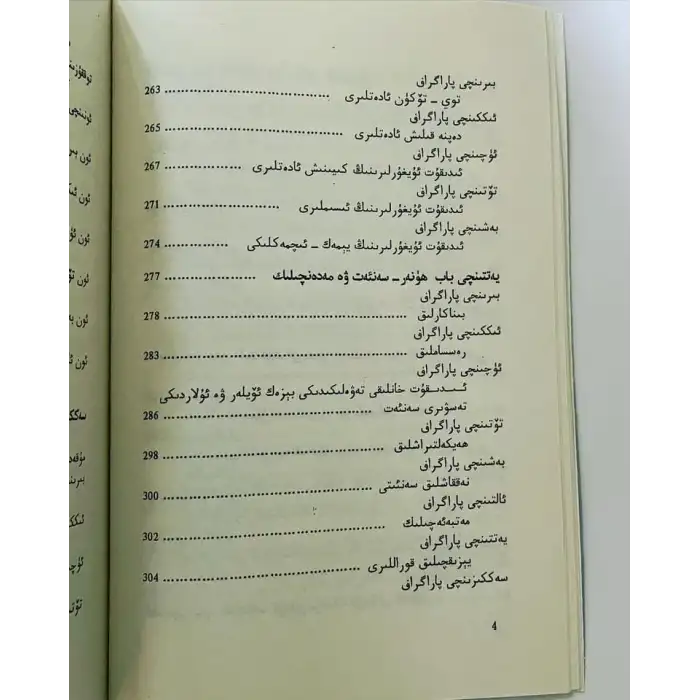 بىرىنچى پاراگراف
توي - تۆكۈن ئادەتلىرى ........................ 263
ئىككىنچى پاراگراف
دەپنە قىلىش ئادەتلىرى ........................ 265
ئۈچىنچى پاراگراف
ئىدىقۇت ئۇيغۇرلىرىنىڭ كىيىنىش ئادەتلىرى ............ 267
تۆتىنچى پاراگراف
ئىدىقۇت ئۇيغۇرلىرىنىڭ ئىسىملىرى .................. 271
بەشىنچى پاراگراف
ئىدىقۇت ئۇيغۇرلىرىنىڭ يېمەك - ئىچمەكلىكى ............ 274
يەتتىنچى باب ھۈنەر - سەنئەت ۋە مەدەنچىلىك ............ 277
بىرىنچى پاراگراف
بىناكارلىق .................................... 278
ئىككىنچى پاراگراف
رەسساملىق .................................... 283
ئۈچىنچى پاراگراف
ئىدىقۇت خانلىقى تەۋەلىكىدىكى بېزەك ئۆيلەر ۋە ئۇلاردىكى
تەسۋىرى سەنئەت .............................. 286
تۆتىنچى پاراگراف
ھەيكەلتىراشلىق .............................. 298
بەشىنچى پاراگراف
نەققاشلىق سەنئىتى .............................. 300
ئالتىنچى پاراگراف
مەتبەئەچىلىك .............................. 302
يەتتىنچى پاراگراف
يېزىقچىلىق قوراللىرى .............................. 304
سەككىزىنچى پاراگراف
4